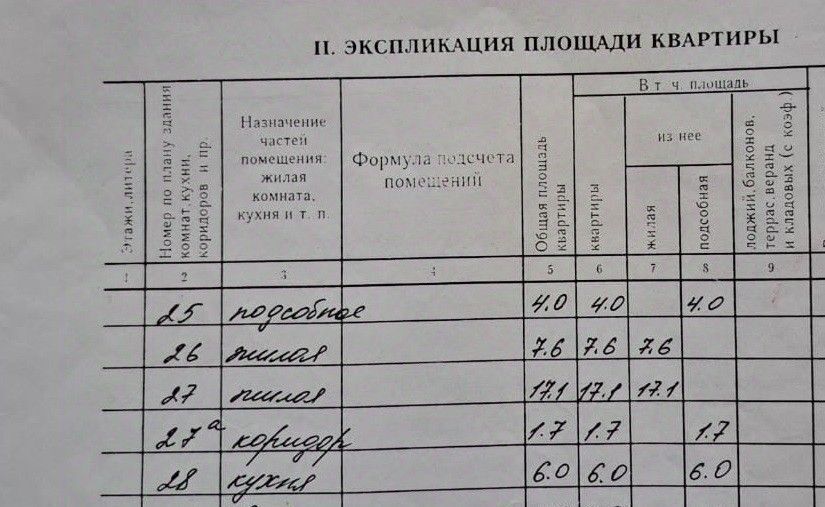 II. ЭКСПЛИКАЦИЯ ПЛОЩАДИ КВАРТИРЫ
Этажи, литера
Номер по плану здания
комнат, кухни,
коридоров и пр.
Назначение
частей
помещения:
жилая
комната,
кухня и т. п.
Формула подсчета
помещений
Общая площадь
квартиры
В т ч. площадь
квартиры
из нее
жилая
подсобная
лоджий, балконов,
террас, веранд
и кладовых (с коэф )
1 2 3 4 5 6 7 8 9
25 подсобное 4.0 4.0 4.0
26 жилая 7.6 7.6 7.6
27 жилая 17.1 17.1 17.1
27а коридор 1.7 1.7 1.7
28 кухня 6.0 6.0 6.0